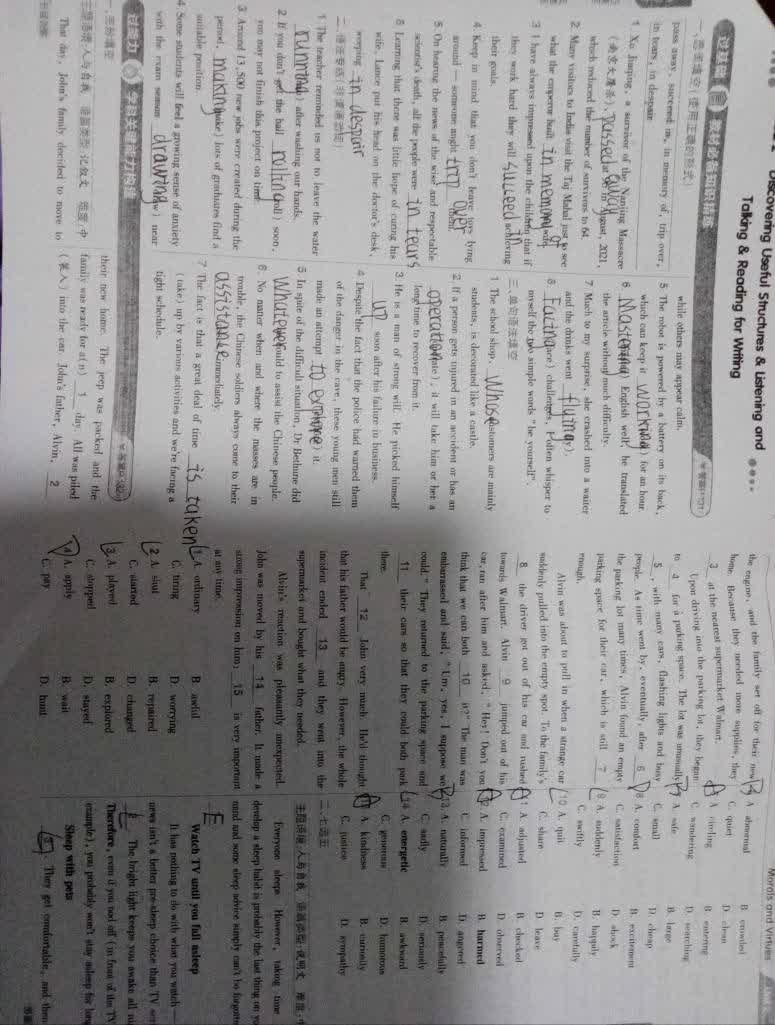 Discovering Useful Structures & Listening and
Talking & Reading for Writing
pass away, succeed in, in memory of, trip over,
in tears, in despair
1 Xu Jiaqing, a survivor of the Nanjing Massacre
passed away
in August, 2021,
which reduced the number of survivors to 64.
2 Many visitors to India visit the Taj Mahal just to see
what the emperor built in memory of
3 I have always impressed upon the children that if
they work hard they will succeed in achieving
their goals.
4 Keep in mind that you don't leave toys lying
around — someone might trip over
5 On hearing the news of the wise and respectable
scientist's death, all the people were in tears
6 Learning that there was little hope of curing his
wife, Lance put his head on the doctor's desk,
weeping in despair
1 The teacher reminded us not to leave the water
running after washing our hands.
2 If you don't get the ball rolling soon,
you may not finish this project on time.
3 Around 13,500 new jobs were created during the
period, making lots of graduates find a
suitable position.
4 Some students will feel a growing sense of anxiety
with the exam season drawing near
while others may appear calm.
5 The robot is powered by a battery on its back,
which can keep it working for an hour.
6 Mastering English well, he translated
the article without much difficulty.
7 Much to my surprise, she crashed into a waiter
and the drinks went flying
8 Facing challenges, Pollen whisper to
myself the two simple words "be yourself".
三、单句语法填空
1 The school shop, whose customers are mainly
students, is decorated like a castle.
2 If a person gets injured in an accident or has an
operation, it will take him or her a
long time to recover from it.
3 He is a man of strong will. He picked himself
up soon after his failure in business.
4 Despite the fact that the police had warned them
of the danger in the cave, these young men still
made an attempt to explore it.
5 In spite of the difficult situation, Dr Bethune did
whatever could to assist the Chinese people.
6 No matter when and where the masses are in
trouble, the Chinese soldiers always come to their
assistance immediately.
7 The fact is that a great deal of time is taken
(take) up by various activities and we're facing a
tight schedule.
That day, John's family decided to move to
their new home. The jeep was packed and the
family was ready for a(n) 1 day. All was piled
(装入) into the car. John's father, Alvin, 2
the engine, and the family set off for their new
home. Because they needed more supplies, they
3 at the nearest supermarket Walmart.
Upon driving into the parking lot, they began
to 4 for a parking space. The lot was unusually
5, with many cars, flashing lights and busy
people. As time went by, eventually, after 6
the parking lot many times, Alvin found an empty
parking space for their car, which is still 7
enough.
Alvin was about to pull in when a strange car
suddenly pulled into the empty spot. To the family's
8 the driver got out of his car and rushed
towards Walmart. Alvin 9 jumped out of his
car, ran after him and asked, "Hey! Don't you
think that we can both 10 it?" The man was
embarrassed and said, "Um, yes, I suppose we
could." They returned to the parking space and
11 their cars so that they could both park
there.
That 12 John very much. He'd thought
that his father would be angry. However, the whole
incident ended 13 and they went into the
supermarket and bought what they needed.
Alvin's reaction was pleasantly unexpected.
John was moved by his 14 father. It made a
strong impression on him; 15 is very important
at any time.
1 A. ordinary B. awful
C. tiring D. worrying
2 A. shut B. repaired
C. started D. changed
3 A. played B. explored
C. stopped D. stayed
4 A. apply B. wait
C. pay D. hunt
A. abnormal B. crowded
C. quiet D. clean
A. circling B. entering
C. wandering D. searching
A. safe B. large
C. small D. cheap
8 A. comfort B. excitement
C. satisfaction D. shock
9 A. suddenly B. happily
C. swiftly D. carefully
10 A. quit B. buy
C. share D. leave
11 A. adjusted B. checked
C. examined D. observed
A. impressed B. harmed
C. informed D. angered
13 A. naturally B. peacefully
C. sadly D. seriously
14 A. energetic B. awkward
C. generous D. humorous
A. kindness B. curiosity
C. justice D. sympathy
二、七选五
Everyone sleeps. However, taking time
develop a sleep habit is probably the last thing on yo
mind and some sleep advice simply can't be forgotte
Watch TV until you fall asleep
It has nothing to do with what you watch
E
news isn't a better pre-sleep choice than TV
The bright light keeps you awake all ni
Therefore, even if you nod off (in front of the TV
example), you probably won't stay asleep for long
Sleep with pets
They get comfortable, and then
Morals and Virtues